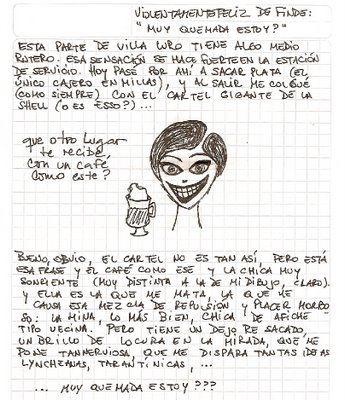 VIOLENTAMENTEFELIZ DE FINDE:
"MUY QUEMADA ESTOY?"
ESTA PARTE DE VILLA LURO TIENE ALGO MEDIO
RUTERO. ESA SENSACIÓN SE HACE FUERTE EN LA ESTACIÓN
DE SERVICIO. HOY PASÉ POR AHÍ A SACAR PLATA (EL
ÚNICO CAJERO EN MILLAS), Y AL SALIR ME COLGUÉ
(COMO SIEMPRE) CON EL CARTEL GIGANTE DE LA
SHELL (O ES ESSO?) ...
que otro lugar
te recibe
con un café
como este?
BUENO, OBVIO, EL CARTEL NO ES TAN ASÍ, PERO ESTÁ
ESA FRASE Y EL CAFÉ COMO ESE Y LA CHICA MUY
SONRIENTE (MUY DISTINTA A LA DE MI DIBUJO, CLARO).
Y ELLA ES LA QUE ME MATA, LA QUE ME
CAUSA ESA MEZCLA DE REPULSIÓN Y PLACER MORBO
SO: LA MINA, LO MÁS BIEN, CHICA DE AFICHE
TIPO VECINA. PERO TIENE UN DEJO RE SACADO,
UN BRILLO DE LOCURA EN LA MIRADA, QUE ME
PONE TANNERVIOSA, QUE ME DISPARA TANTAS IDEAS
LYNCHEANAS, TARANTÍNICAS, ...
... MUY QUEMADA ESTOY???